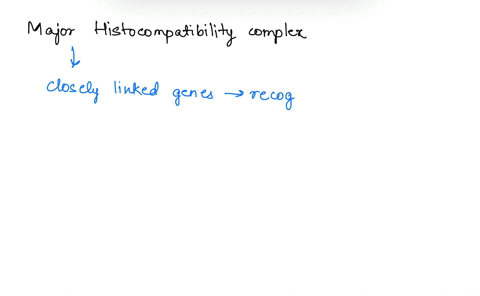 Major Histocompatibility complex
↓
closely linked genes → recog